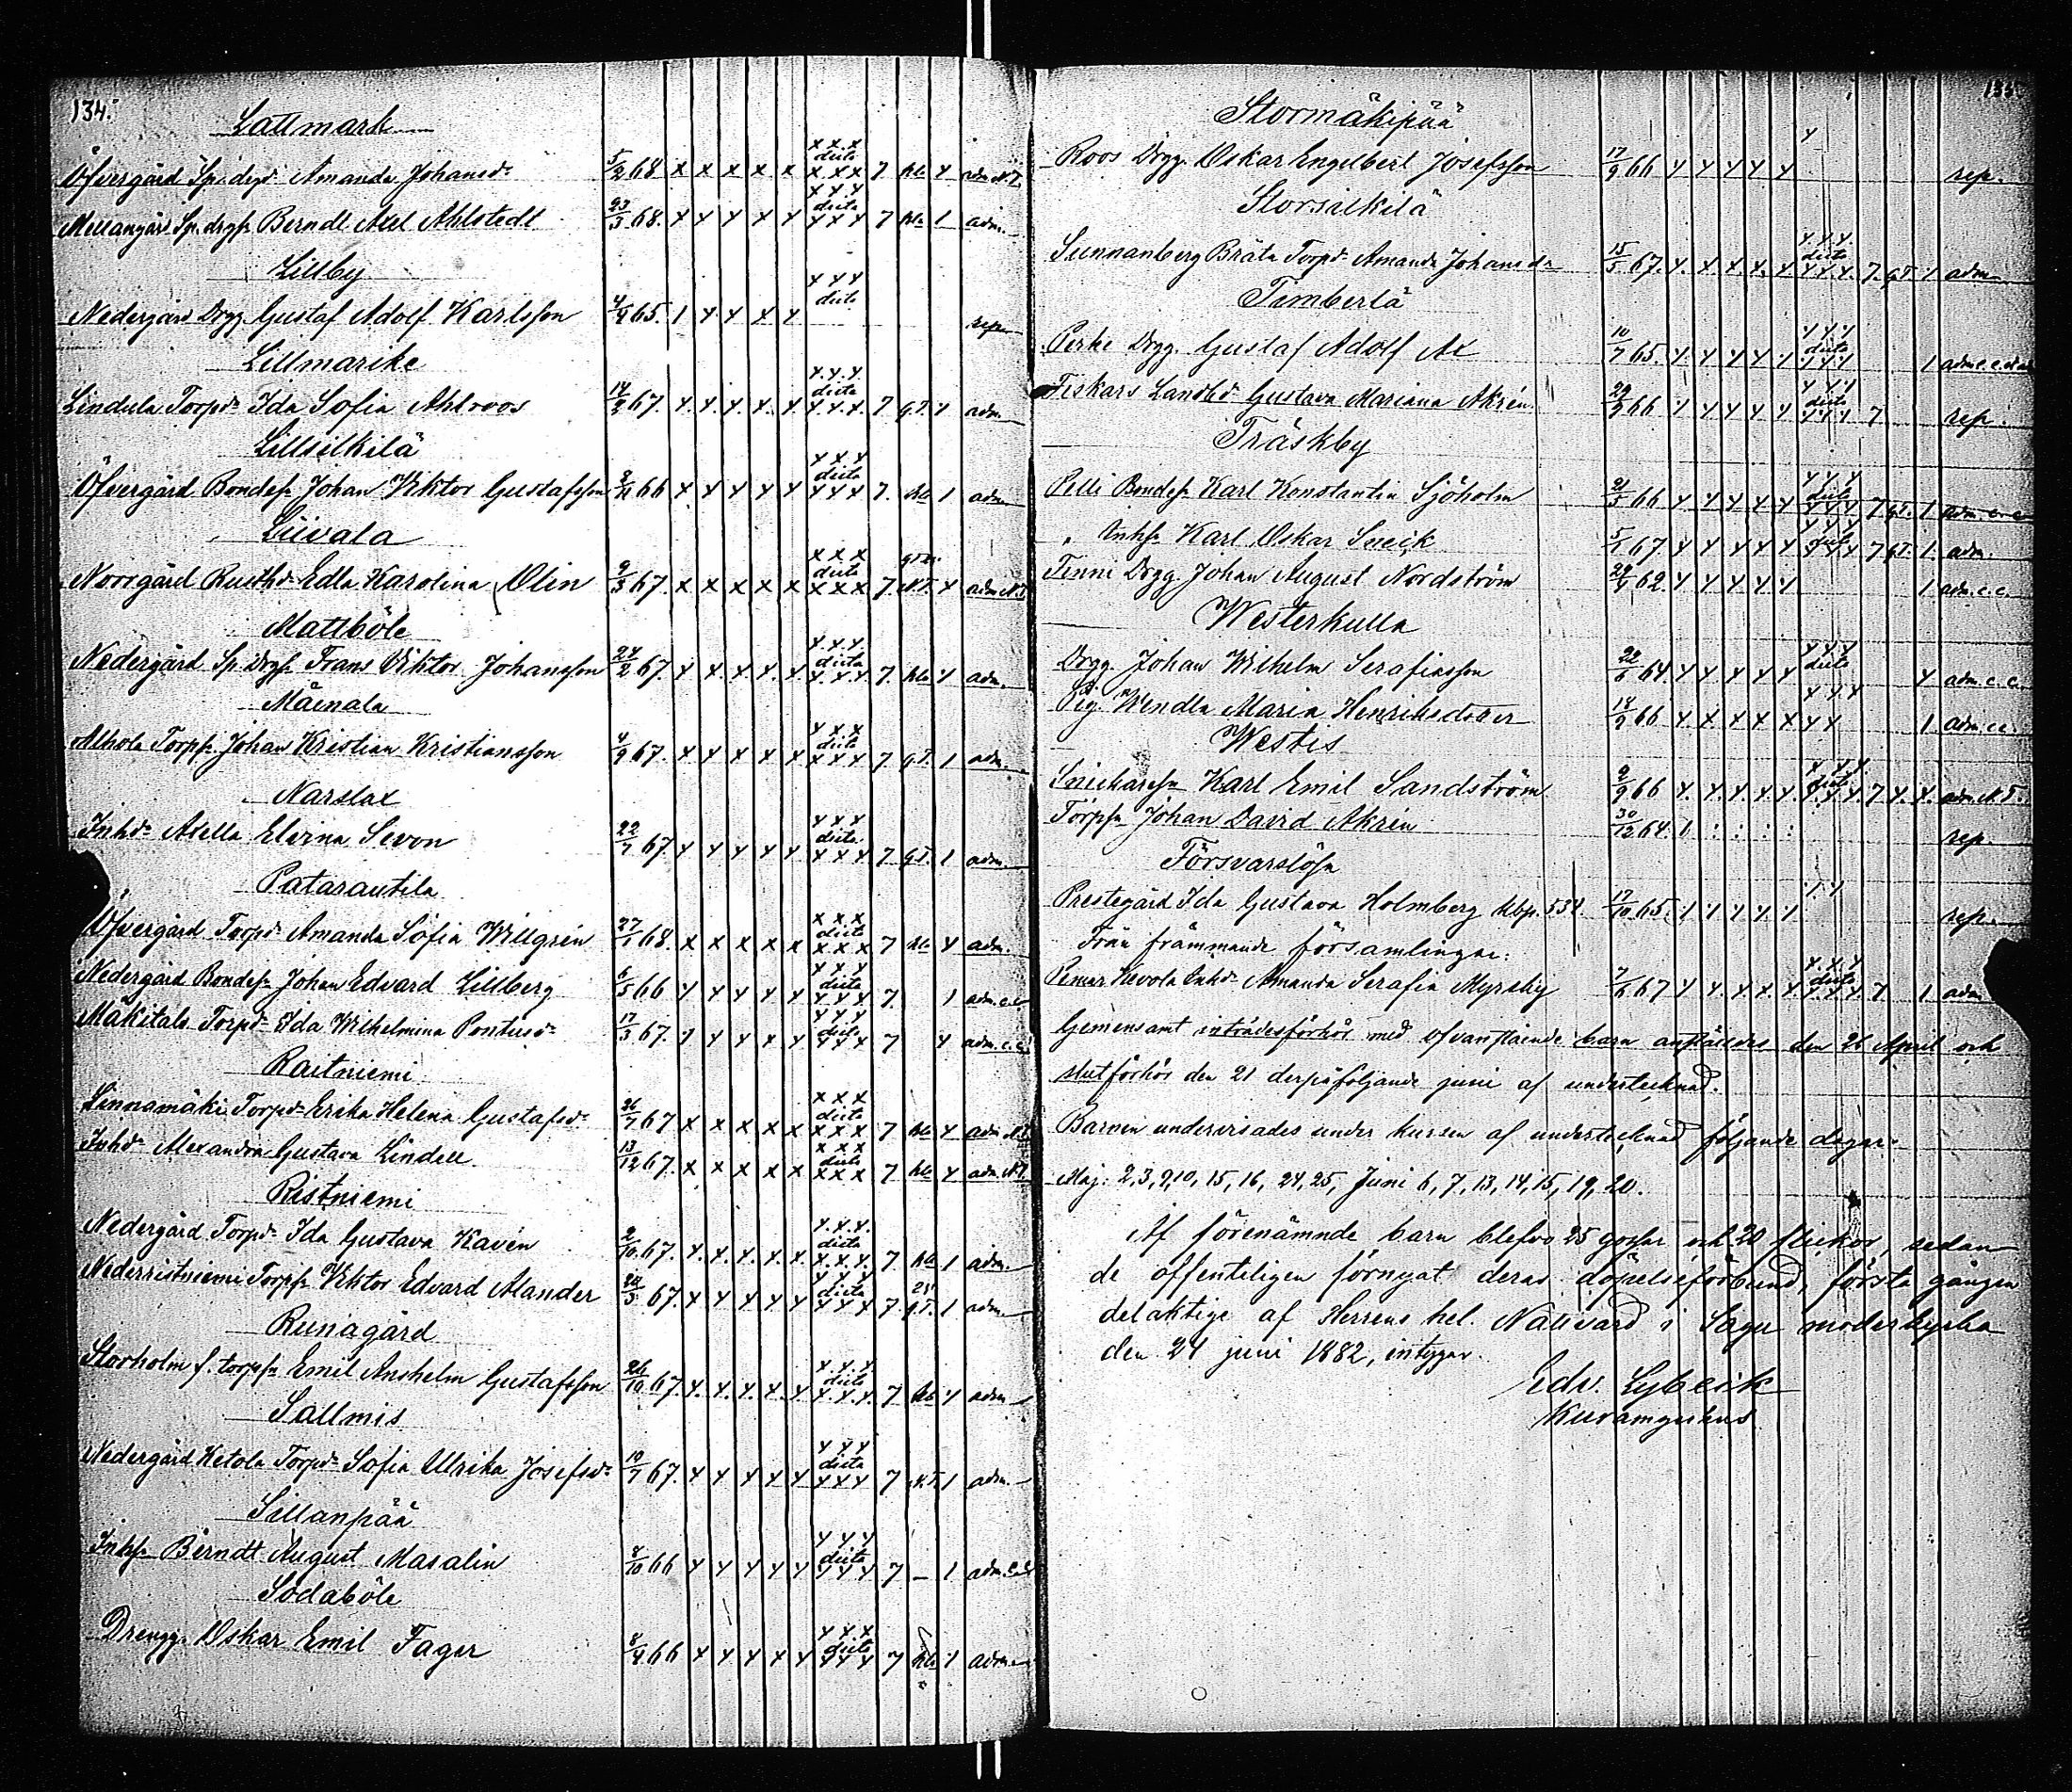 134.
Lattmark
Öfvergård Sp. drgd. Amanda Johansd. 5/2 68 x x x x x x x x dicto x x x 7 kls x adm. N.T.
Mellangård Sp. drgs. Berndt Axel Ahlstedt 23/3 68. x x x x x x x x dicto x x x 7 kls 1 adm.
Lillby
Nedergård Drgg. Gustaf Adolf Karlsson 4/4 65. 1 x x x x x x x dicto rep.
Lillmarike
Lindula Torpd. Ida Sofia Ahlroos 14/3 67. x x x x x x x x dicto x x x 7 G.T. x adm.
Lillsilkilä
Öfvergård Bondes. Johan Viktor Gustafsson 9/11 66 x x x x x x x x dicto x x x 7. kls 1 adm.
Liivala
Norrgård Rusthd. Edla Karolina Olin 9/3 67. x x x x x x x x dicto x x x 7. N.T. x adm. N.T.
Mattböle
Nedergård Sp. Drgs. Frans Viktor Johansson 24/2 67. x x x x x x x x dicto x x x 7. kls x adm.
Mäenala
Alhola Torps. Johan Kristian Kristiansson 4/9 67. x x x x x x x x dicto x x x 7. G.T. 1 adm.
Narslax
Inhd. Axella Elvina Sevon 22/7 67. x x x x x x x x dicto x x x 7 G.T. 1 adm.
Patarautila
Öfvergård Torpd. Amanda Sofia Willgrén 27/1 68. x x x x x x x x dicto x x x 7 kls x adm.
Nedergård Bondes. Johan Edvard Lillberg 6/5 66 x x x x x x x x dicto x x x 7. 1 adm. c.c.
Mäkitalo Torpd. Ida Wilhelmina Pontusd. 17/3 67. x x x x x x x x dicto x x x 7 x adm. c.c.
Raitniemi
Linnamäki Torpd. Erika Helena Gustafsd. 26/7 67 x x x x x x x x dicto x x x 7 kls x adm. N.T.
Inhd. Alexandra Gustava Lindell 13/12 67. x x x x x x x x dicto x x x 7 kls x adm. N.T.
Ristniemi
Nedergård Torpd. Ida Gustava Kavén 2/10 67. x x x x x x x x dicto x x x 7 kls 1 adm.
Nederristniemi Torps. Viktor Edvard Alander 24/3 67. x x x x x x x x dicto x x x 7 G.T. 1 adm.
Runagård
Storholm f. torps. Emil Anshelm Gustafsson 26/10 67. x x x x x x x x dicto x x x 7 kls x adm.
Sallmis
Nedergård Ketola Torpd. Sofia Ulrika Josefsd. 10/7 67. x x x x x x x x dicto x x x 7 N.T. 1 adm.
Sillanpää
Inhs. Berndt August Masalin 8/10 66 x x x x x x x x dicto x x x 7 – 1 adm. c.c.
Sodaböle
Drengg. Oskar Emil Fager 8/4 66 x x x x x x x x dicto x x x 7 kls 1 adm.
135.
Stormäkipää
Roos Drgg. Oskar Engelbert Josefsson 17/9 66 x x x x x x rep.
Storsilkilä
Sunnanberg Bråta Torpd. Amanda Johansd. 15/5 67. x x x x x x x x dicto x x x 7. G.T. 1 adm.
Timberlä
Perke Drgg. Gustaf Adolf Ax 10/7 65. x x x x x x x x dicto x x x 1 adm. c.c.
Fiskars Landbd. Gustava Mariana Akrén 29/9 66 x x x x x x x x dicto x x x 7 rep.
Träskby
Pelli Bondes. Karl Konstantin Sjöholm 21/5 66 x x x x x x x x dicto x x x 7 G.T. 1 adm. c.c.
„ Inhs. Karl Oskar Sneck 5/1 67 x x x x x x x x dicto x x x 7 G.T. 1. adm.
Tenni Drgg. Johan August Nordström 62. x x x x x 1 adm. c.c.
Westerkulla
Drgg. Johan Wilhelm Serafinsson 22/6 64. x x x x x x x x dicto x adm. c.c.
Pig. Wendla Maria Henriksdotter 18/9 66 x x x x x x x x x x 1 adm. c.c.
Westis
Snickares. Karl Emil Sandström 2/9 66 x x x x x x x x dicto x x x 7 x x adm. N.T.
Torps. Johan David Akrén 30/12 64. 1 : : : : rep.
Försvarslösa
Prestegård Ida Gustava Holmberg kbp. 534. 17/10 65. 1 x x x x x x rep.
Från främmande församlingar:
Pemar Kevola Inhd. Amanda Serafia Myrsby 7/6 67 x x x x x x x x dicto x x x 7 1 adm.
Gemensamt inträdesförhör med ofvanstående barn anställdes den 26 April och
slutförhör den 21 derpåföljande juni af undertecknad.
Barnen undervisades under kursen af undertecknad följande dagar:
Maj: 2, 3, 9, 10, 15, 16, 24, 25, Juni 6, 7, 13, 14, 15, 19, 20.
Af förenämnde barn blefvo 25 gossar och 20 flickor, sedan
de offenteligen förnyat deras döpelseförbund, första gången
delaktige af Herrens hel. Nattvard i Sagu moderkyrka
den 24 juni 1882, intygar.
Edv. Lybeck